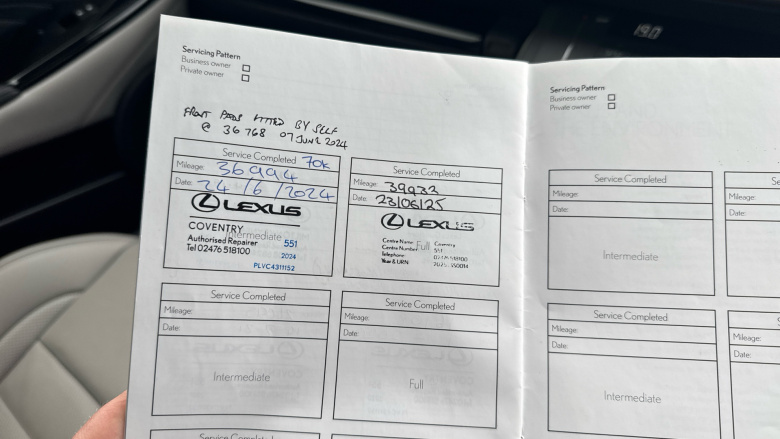 19.0
Servicing Pattern
Business owner
Private owner
FRONT PADS FITTED BY SELF
@ 36768 07 JUNE 2024
Service Completed 70k
Mileage: 36994
Date: 24/6/2024
LEXUS
COVENTRY
Intermediate
Authorised Repairer 551
Tel 02476 518100
2024
PLVC4311152
Service Completed
Mileage: 39933
Date: 23/06/25
LEXUS
Full
Centre Name Coventry
Centre Number 551
Telephone
Year & URN:
Service Completed
Mileage:
Date:
Intermediate
Service Completed
Mileage:
Date:
Full
Service Completed
Servicing Pattern
Business owner
Private owner
Service Completed
Mileage:
Date:
Intermediate
Se
Mileage:
Date:
Service Completed
Mileage:
Date:
Intermediate
Se
Mileage:
Date: